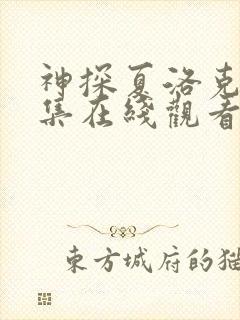 神探夏洛克
集在綫觀看
東方城府的猫